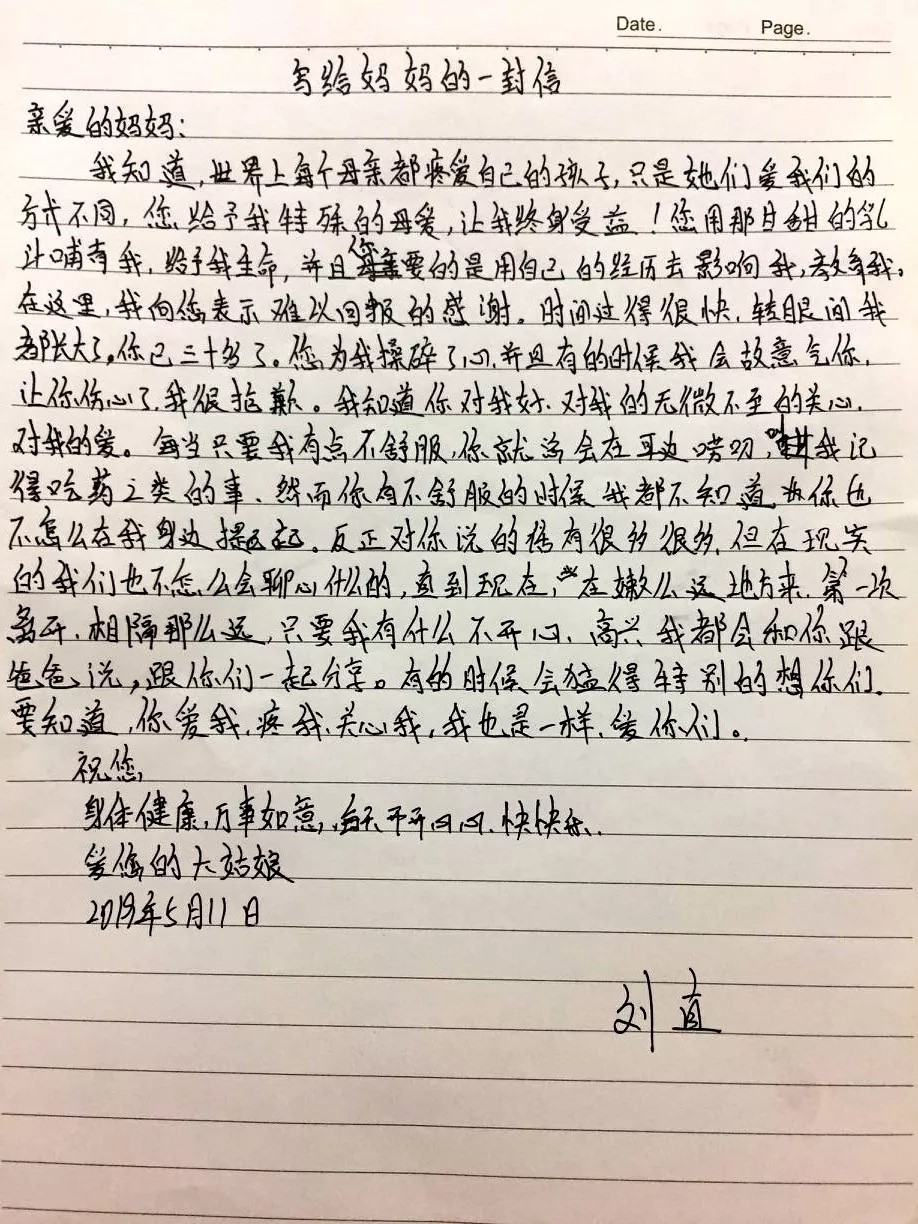 Date. Page.
写给妈妈的一封信
亲爱的妈妈:
我知道,世界上每个母亲都疼爱自己的孩子,只是她们爱我们的
方式不同,您给予我特殊的母爱,让我终身受益!您用那甘甜的乳
汁哺育我,给予我生命,并且您重要的是用自己的经历去影响我,教育我。
在这里,我向您表示难以回报的感谢。时间过得很快,转眼间我
都长大了,你已三十多了。您为我操碎了心,并且有的时候我会故意气你,
让你伤心了,我很抱歉。我知道你对我好、对我的无微不至的关心、
对我的爱。每当只要我有点不舒服,你就总会在耳边唠叨,我记
得吃药之类的事、然而你有不舒服的时候我都不知道,你也
不怎么在我身边提起。反正对你说的话有很多很多,但在现实
的我们也不怎么会聊心什么的,直到现在,在嫩么远地方来,第一次
离开、相隔那么远,只要我有什么不开心、高兴我都会和你跟
爸爸说,跟你们一起分享。有的时候会猛得特别的想你们。
要知道,你爱我,疼我,关心我,我也是一样,爱你们。
祝您,
身体健康,万事如意,每天开开心心、快快乐.
爱您的大姑娘
2019年5月11日
刘直